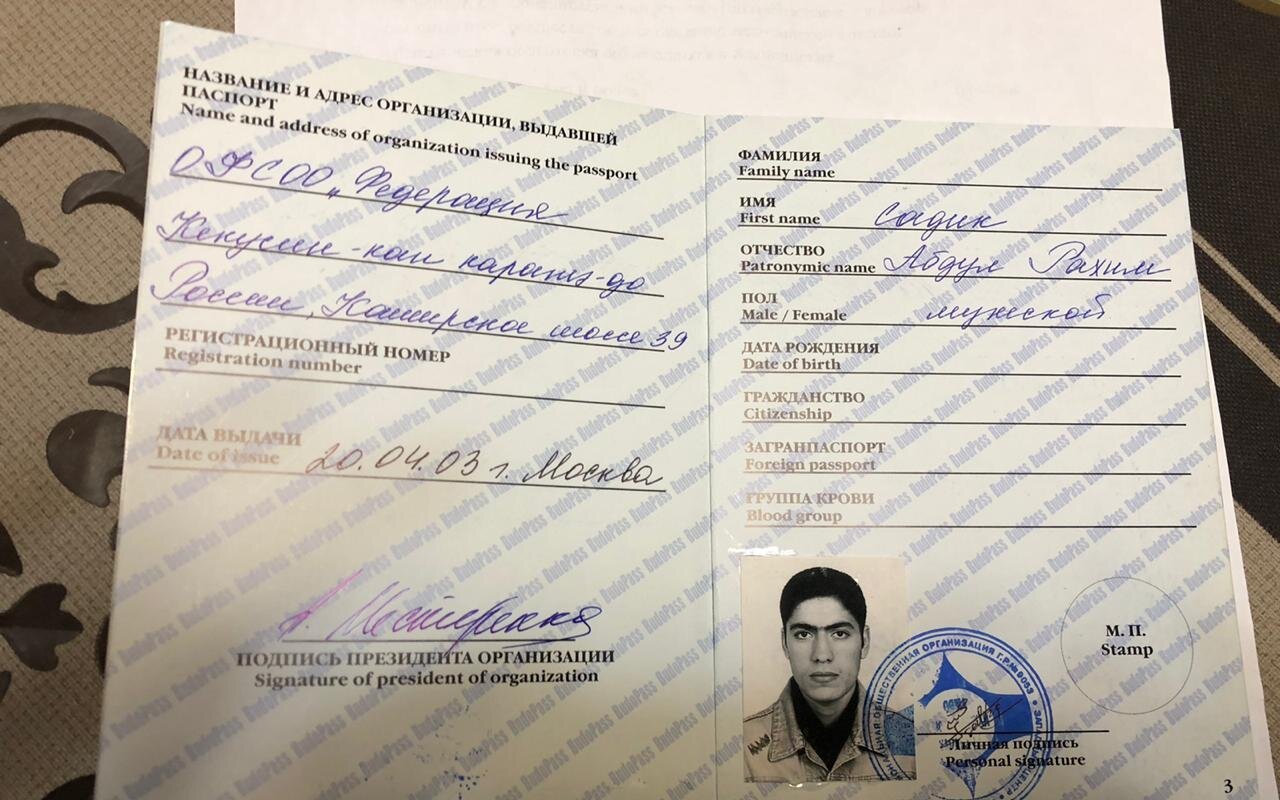 НАЗВАНИЕ И АДРЕС ОРГАНИЗАЦИИ, ВЫДАВШЕЙ
ПАСПОРТ
Name and address of organization issuing the passport
ОФСОО „Федерация
Кекусин-кан каратэ-до
России, Каширское шоссе 39
РЕГИСТРАЦИОННЫЙ НОМЕР
Registration number
ДАТА ВЫДАЧИ
Date of issue 20.04.03 г. Москва
ПОДПИСЬ ПРЕЗИДЕНТА ОРГАНИЗАЦИИ
Signature of president of organization
ФАМИЛИЯ
Family name
ИМЯ
First name Садик
ОТЧЕСТВО
Patronymic name Абдул Рахим
ПОЛ
Male / Female мужской
ДАТА РОЖДЕНИЯ
Date of birth
ГРАЖДАНСТВО
Citizenship
ЗАГРАНПАСПОРТ
Foreign passport
ГРУППА КРОВИ
Blood group
М. П.
Stamp
ОБЩЕСТВЕННАЯ ОРГАНИЗАЦИЯ Г.Р.№9053
Личная подпись
Personal signature
3
BudoPass